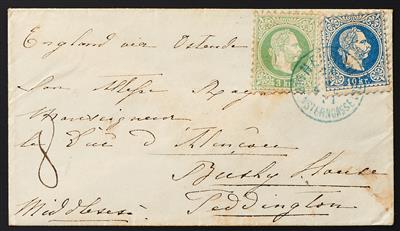 England via Ostende
Son Altesse Roy
Monseigneur
le Duc d'Alençon
Bushy House
Teddington
Middlesex
8
10 Kr.